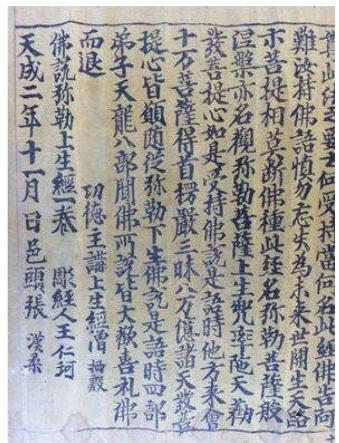 尊此法之要云何受持當何名此經佛告阿
難汝持佛語慎勿忘失為未來世開生天路
示菩提相莫斷佛種此經名弥勒菩薩般
涅槃亦名觀弥勒菩薩上生兜率陁天勸
發菩提心如是受持佛說是語時他方來會
十万菩薩得首楞嚴三昧八万億諸天發菩
提心皆願随從弥勒下生佛說是語時四部
弟子天龍八部聞佛所說皆大歡喜礼佛
而退 功德主講上生經僧 栖殷
佛說弥勒上生經一卷 彫經人王仁珂
天成二年十一月 日邑頭張 漢柔